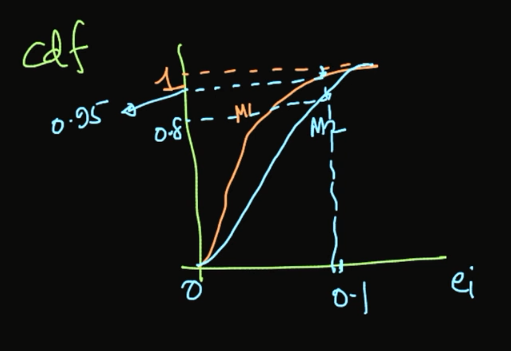 cdf
1
0.95
0.8
M1
M2
0
0.1
ei